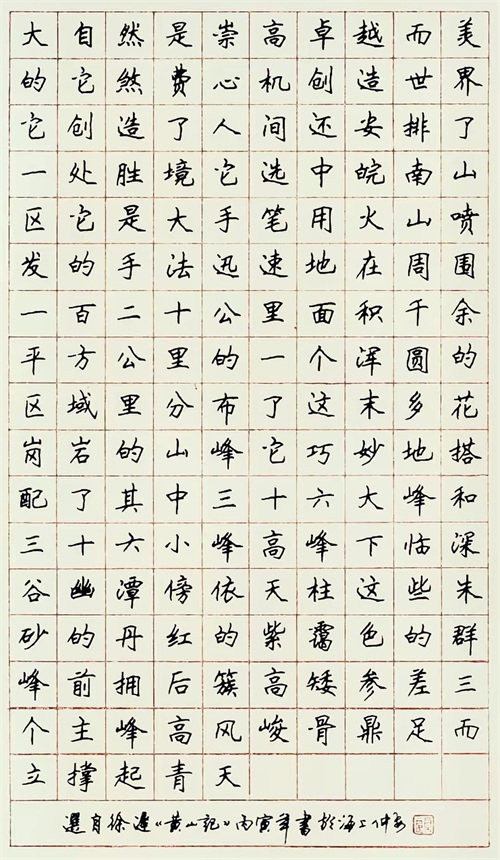 大自然是崇高卓越而美
的它煞费心机创造世界
它创造了人间还安排了
一处胜境它选中皖南山
区它是大手笔用火山喷
发的手法迅速地在周围
一百二十公里面积千余
平方公里的一个浑圆的
区域里分布了这末多花
岗岩的山峰它巧妙地搭
配了其中三十六大峰和
三十六小峰高峰下临深
谷幽潭傍依天柱这些朱
砂的丹红的紫霭色的群
峰前拥后簇高矮参差三
个主峰高风峻骨鼎足而
立撑起青天
選自徐迟《黄山记》丙寅年書於海上